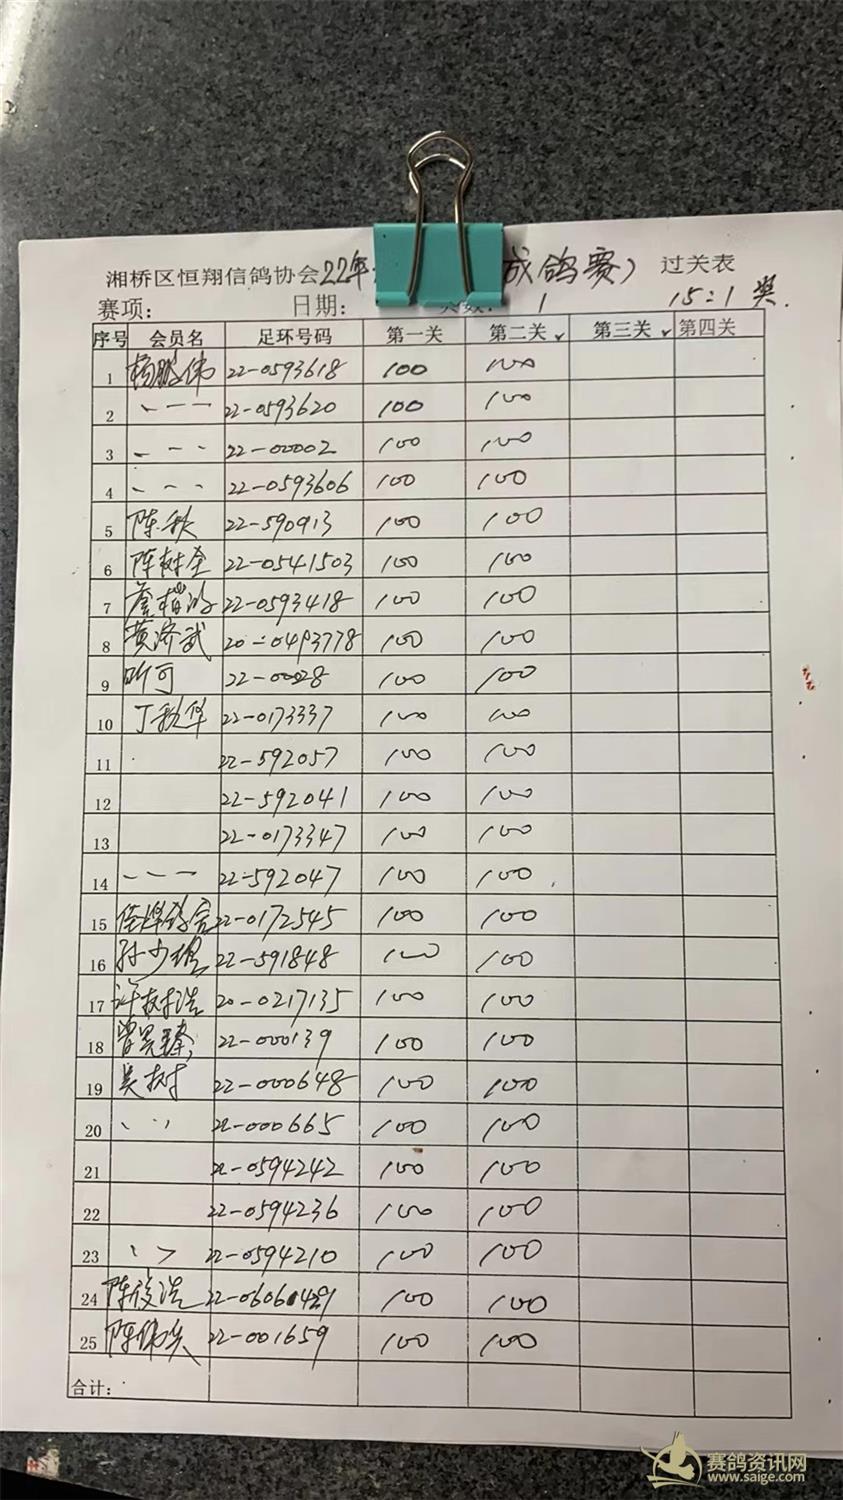 湘桥区恒翔信鸽协会22年 成鸽赛) 过关表
赛项: 日期: 1 15:1 奖.
序号 会员名 足环号码 第一关 第二关 第三关 第四关
1 杨鹏伟 22-0593618 100 100
2 〃 22-0593620 100 100
3 〃 22-00002 100 100
4 〃 22-0593606 100 100
5 陈秋 22-590913 100 100
6 陈树全 22-0541503 100 100
7 22-0593418 100 100
8 黄济武 20-0493778 100 100
9 昕可 22-00028 100 100
10 丁秋华 22-0173337 100 100
11 22-592057 100 100
12 22-592041 100 100
13 22-0173347 100 100
14 〃 22-592047 100 100
15 22-0172545 100 100
16 孙少 22-591848 100 100
17 许树浩 20-0217135 100 100
18 曾 22-000139 100 100
19 吴树 22-000648 100 100
20 〃 22-000665 100 100
21 22-0594242 100 100
22 22-0594236 100 100
23 〃 22-0594210 100 100
24 陈 浩 100 100
25 陈伟 22-001659 100 100
合计:
赛鸽资讯网
www.saige.com